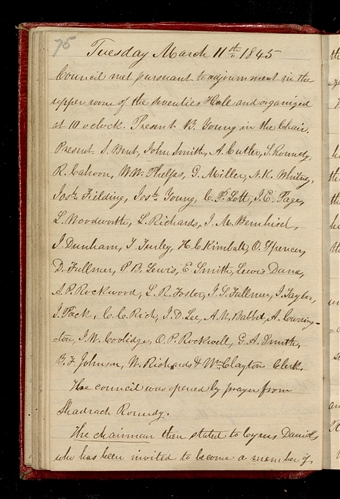 75
Tuesday March 11th 1845
Council met pursuant to adjournment in the
upper room of the Seventies Hall and organized
at 10 o'clock. Present B. Young in the Chair.
Present J. Bent, John Smith, A. Cutler, S. Roundy,
R. Cahoon, W. W. Phelps, G. Miller, N. K. Whitney,
Jos. Fielding, Jos. Young, C. P. Lott, J. E. Page,
L. Woodworth, L. Richards, J. M. Bernhisel,
J. Dunham, T. Turley, H. C. Kimball, O. Spencer,
D. Fullmer, P. B. Lewis, E. Smith, Lewis Dana,
A. P. Rockwood, L. R. Foster, J. S. Fullmer, J. Taylor,
J. Pack, C. C. Rich, J. D. Lee, A. W. Babbit, A. Covving-
ton, J. W. Coolidge, O. P. Rockwell, G. A. Smith,
B. F. Johnson, W. Richards & Wm. Clayton Clerk.
The council was opened by prayer from
Shadrach Roundy.
The chairman then stated to Cyrus Daniels
who has been invited to become a member of